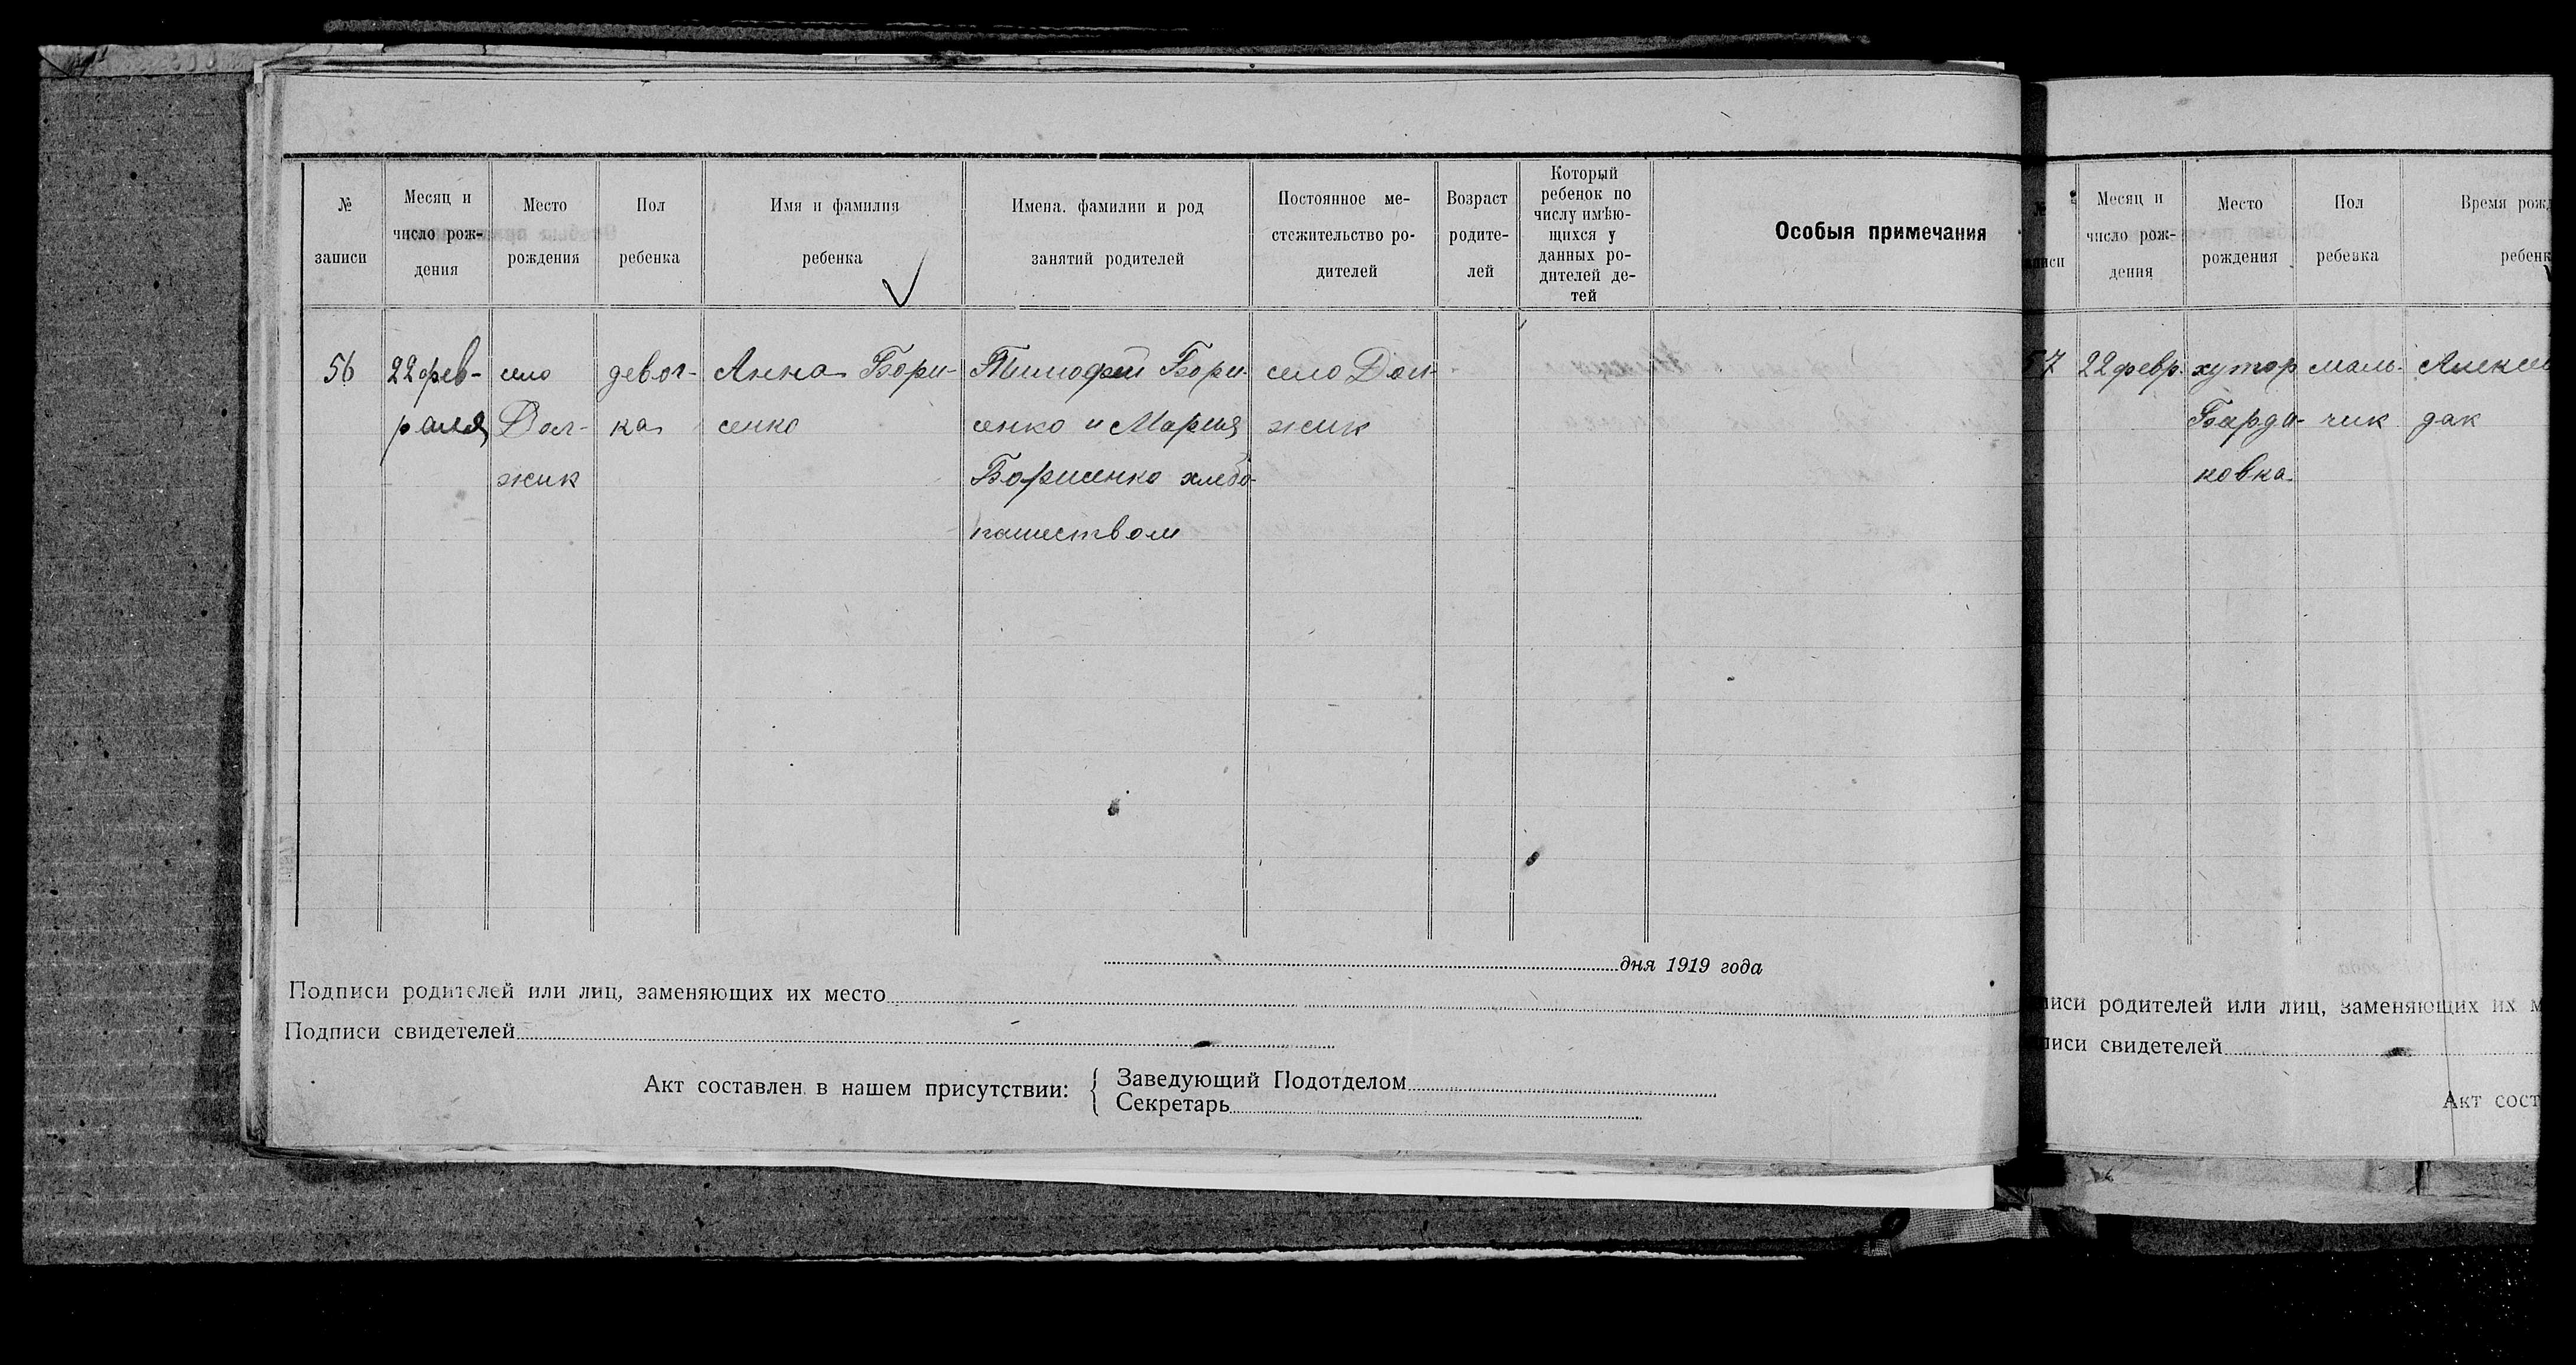 № записи
Месяц и число рож-дения
Место рождения
Пол ребенка
Имя и фамилия ребенка
Имена. фамилии и род занятий родителей
Постоянное ме-стежительство ро-дителей
Возраст родите-лей
Который ребенок по числу имѣю-щихся у данных ро-дителей де-тей
Особыя примечания
56
22 фев-
раля
село
Дол-
жик
девоч-
ка
Анна Бори-
сенко
Тимофей Бори-
сенко и Мария
Борисенко хлебо-
пашеством
село Дол-
жик
дня 1919 года
Подписи родителей или лиц, заменяющих их место
Подписи свидетелей
Акт составлен в нашем присутствии:
Заведующий Подотделом
Секретарь
№
писи
Месяц и число рож-дения
Место рождения
Пол ребенка
Время рожд
ребенк
57
22 февр.
хутор
Барда-
ковка
маль-
чик
Алексе
дак
писи родителей или лиц, заменяющих их м
писи свидетелей
Акт сост